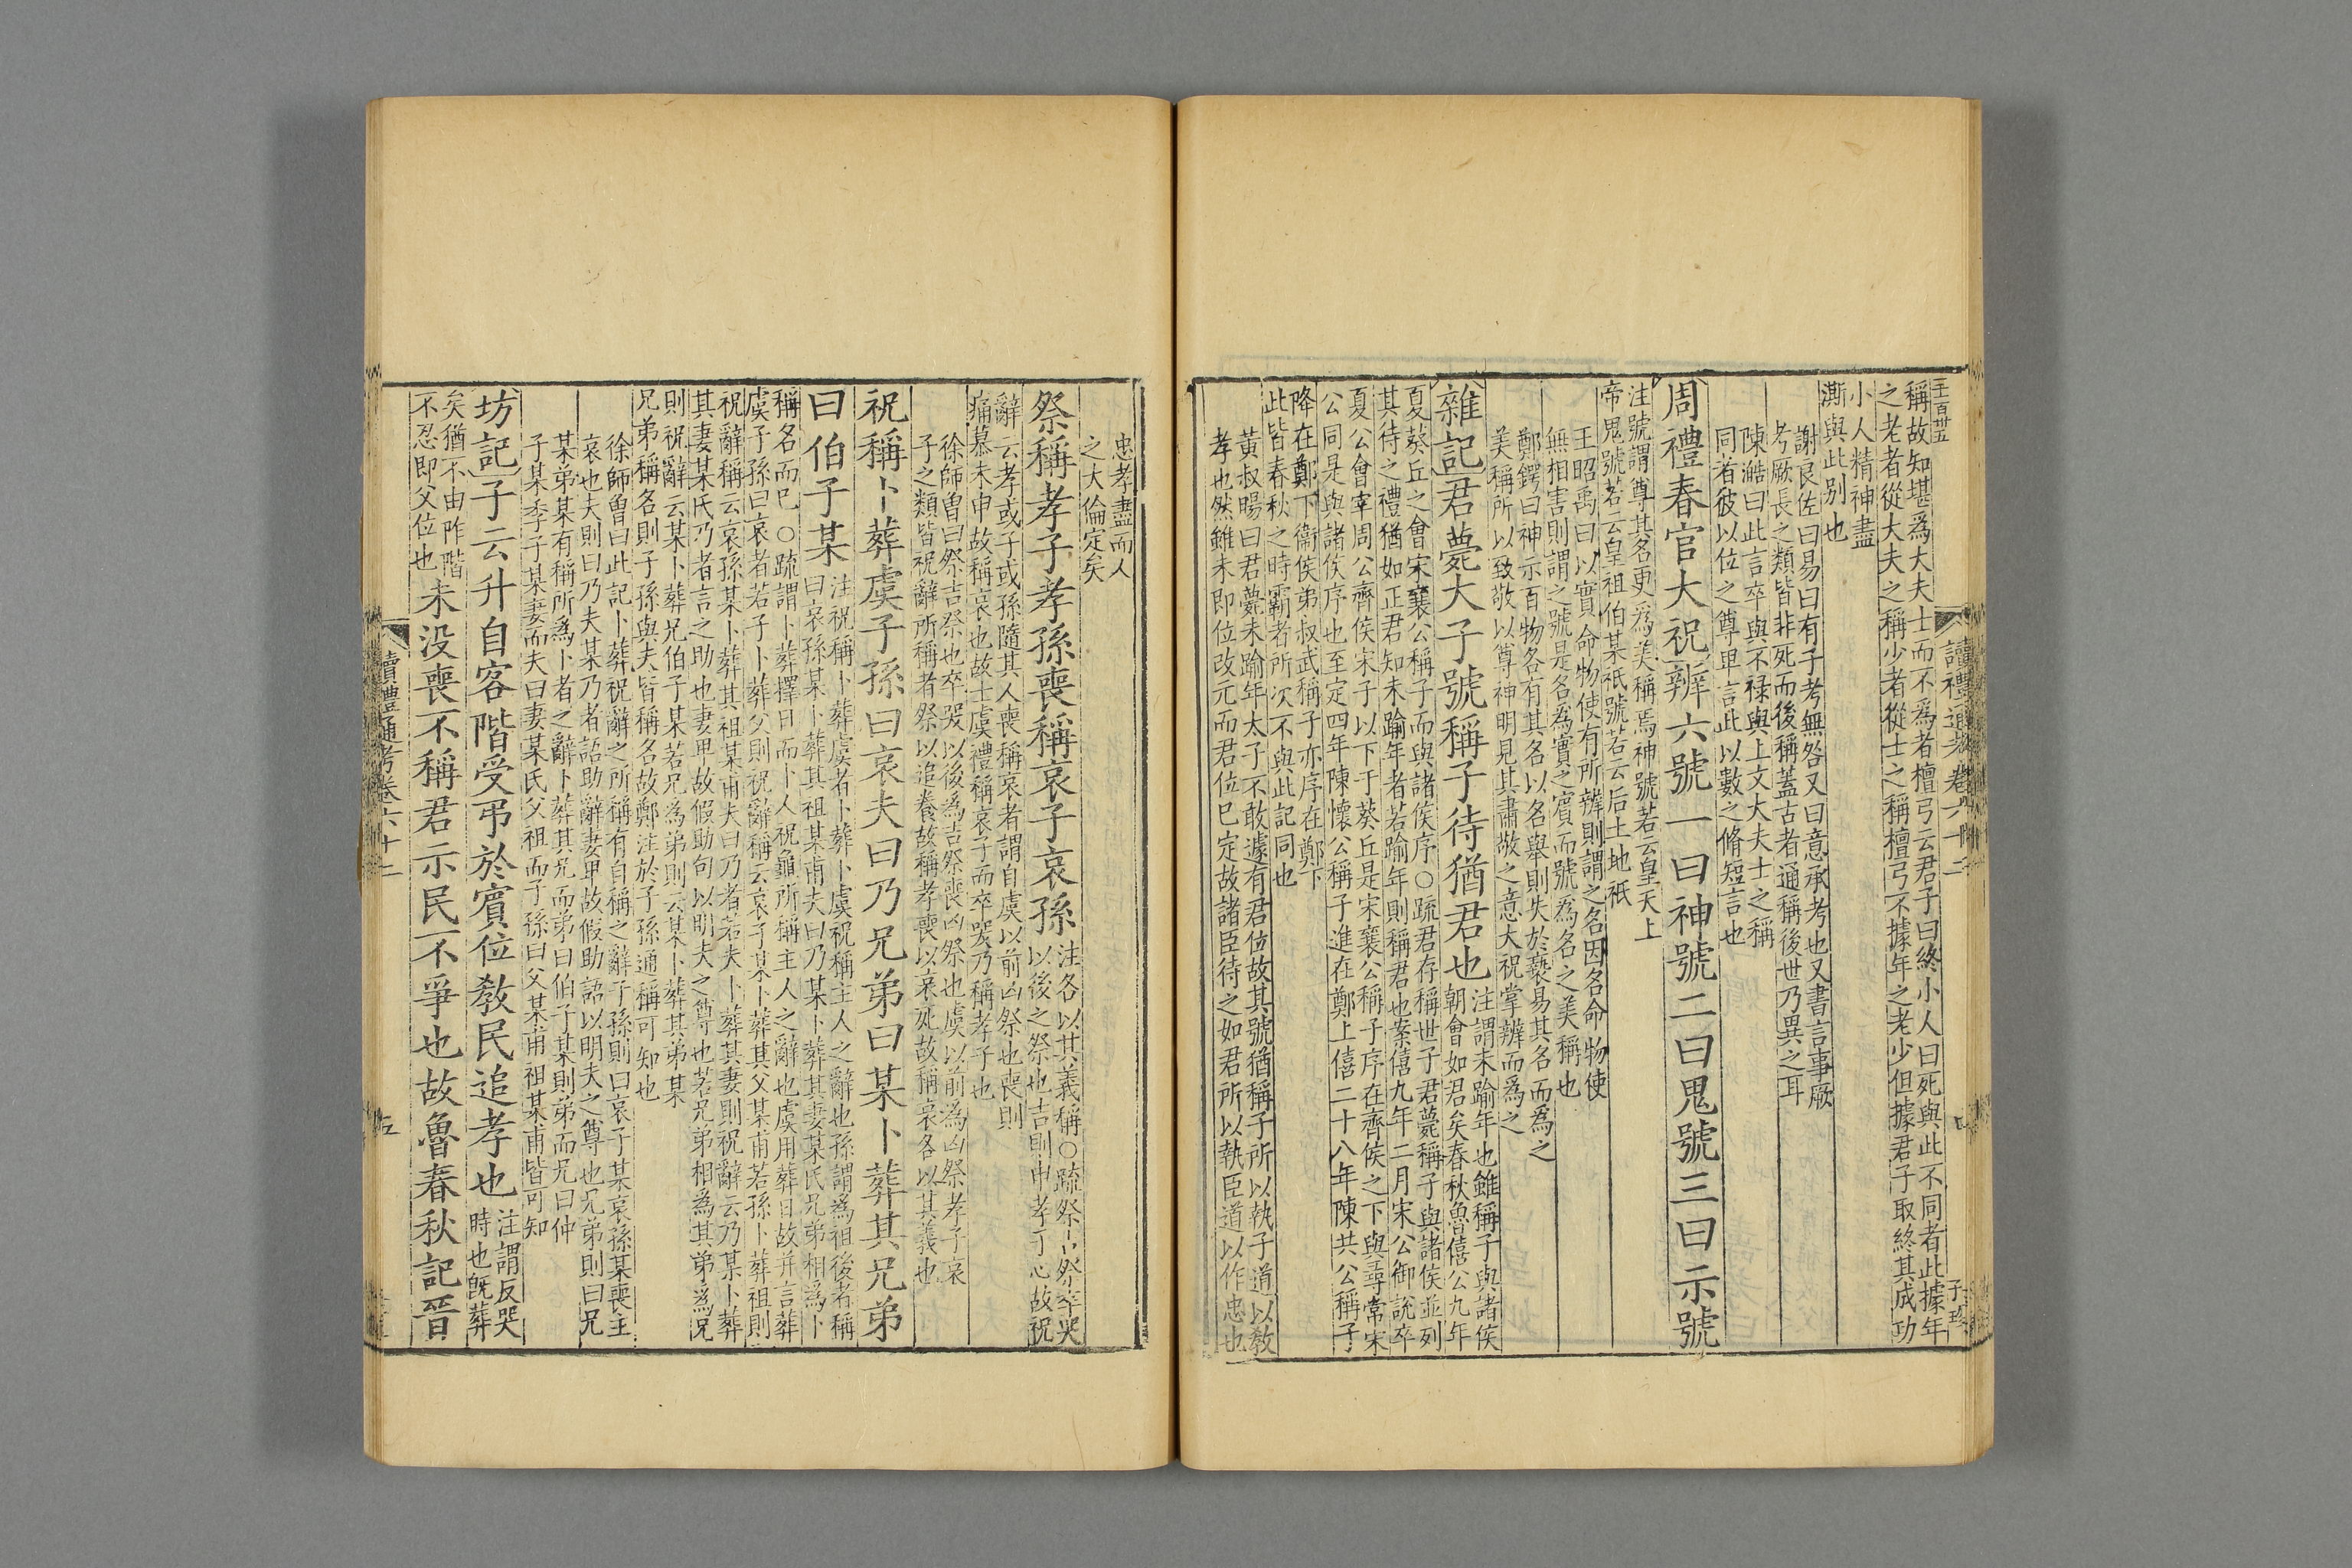 稱故知堪爲大夫士而不爲者檀弓云君子曰終小人曰死與此不同者此據年
之老者從大夫之稱少者從士之稱檀弓不據年之老少但據君子取終其成功
小人精神盡
澌與此别也
謝良佐曰易曰有子考無咎又曰意承考也又書言事厥
考厥長之類皆非死而後稱蓋古者通稱後世乃異之耳
陳澔曰此言卒與不禄與上文大夫士之稱
同者彼以位之尊卑言此以數之脩短言也
周禮春官大祝辨六號一曰神號二曰鬼號三曰示號
注號謂尊其名更爲美稱焉神號若云皇天上
帝鬼號若云皇祖伯某祇號若云后土地祇
王昭禹曰以實命物使有所辨則謂之名因名命物使
無相害則謂之號是名爲實之賓而號爲名之美稱也
鄭鍔曰神示百物各有其名以名舉則失於褻易其名而爲之
美稱所以致敬以尊神明見其肅敬之意大祝掌辨而爲之
雜記君薨大子號稱子待猶君也
注謂未踰年也雖稱子與諸侯
朝會如君矣春秋魯僖公九年
夏葵丘之會宋襄公稱子而與諸侯序○疏君存稱世子君薨稱子與諸侯並列
其待之禮猶如正君知未踰年者若踰年則稱君也案僖九年二月宋公御說卒
夏公會宰周公齊侯宋子以下于葵丘是宋襄公稱子序在齊侯之下與尋常宋
公同是與諸侯序也至定四年陳懷公稱子進在鄭上僖二十八年陳共公稱子
降在鄭下衞侯弟叔武稱子亦序在鄭下
此皆春秋之時霸者所次不與此記同也
黃叔暘曰君薨未踰年太子不敢遽有君位故其號猶稱子所以執子道以敎
孝也然雖未即位改元而君位已定故諸臣待之如君所以執臣道以作忠也
忠孝盡而人
之大倫定矣
祭稱孝子孝孫喪稱哀子哀孫
注各以其義稱○疏祭吉祭卒哭
以後之祭也吉則申孝子心故祝
辭云孝或子或孫隨其人喪稱哀者謂自虞以前凶祭也喪則
痛慕未申故稱哀也故士虞禮稱哀子而卒哭乃稱孝子也
徐師曾曰祭吉祭也卒哭以後爲吉祭喪凶祭也虞以前爲凶祭孝子哀
子之類皆祝辭所稱者祭以追養故稱孝喪以哀死故稱哀各以其義也
祝稱卜葬虞子孫曰哀夫曰乃兄弟曰某卜葬其兄弟
曰伯子某
注祝稱卜葬虞者卜葬卜虞祝稱主人之辭也孫謂爲祖後者稱
曰哀孫某卜葬其祖某甫夫曰乃某卜葬其妻某氏兄弟相爲卜
稱名而已○疏謂卜葬擇日而卜人祝龜所稱主人之辭也虞用葬日故并言葬
虞子孫曰哀者若子卜葬父則祝辭稱云哀子某卜葬其父某甫若孫卜葬祖則
祝辭稱云哀孫某卜葬其祖某甫夫曰乃者若夫卜葬其妻則祝辭云乃某卜葬
其妻某氏乃者言之助也妻卑故假助句以明夫之尊也若兄弟相爲其弟爲兄
則祝辭云某卜葬兄伯子某若兄爲弟則云某卜葬其弟某
兄弟稱名則子孫與夫皆稱名故鄭注於子孫通稱可知也
徐師曾曰此記卜葬祝辭之所稱有自稱之辭子孫則曰哀子某哀孫某喪主
哀也夫則曰乃夫某乃者語助辭妻卑故假助語以明夫之尊也兄弟則曰兄
某弟某有稱所爲卜者之辭卜葬其兄而弟曰伯子某則弟而兄曰仲
子某季子某妻而夫曰妻某氏父祖而子孫曰父某甫祖某甫皆可知
坊記子云升自客階受弔於賓位敎民追孝也
注謂反哭
時也旣葬
矣猶不由阼階
不忍即父位也
未没喪不稱君示民不爭也故魯春秋記晉
讀禮通考卷六十二
讀禮通考卷六十二
五
子珍